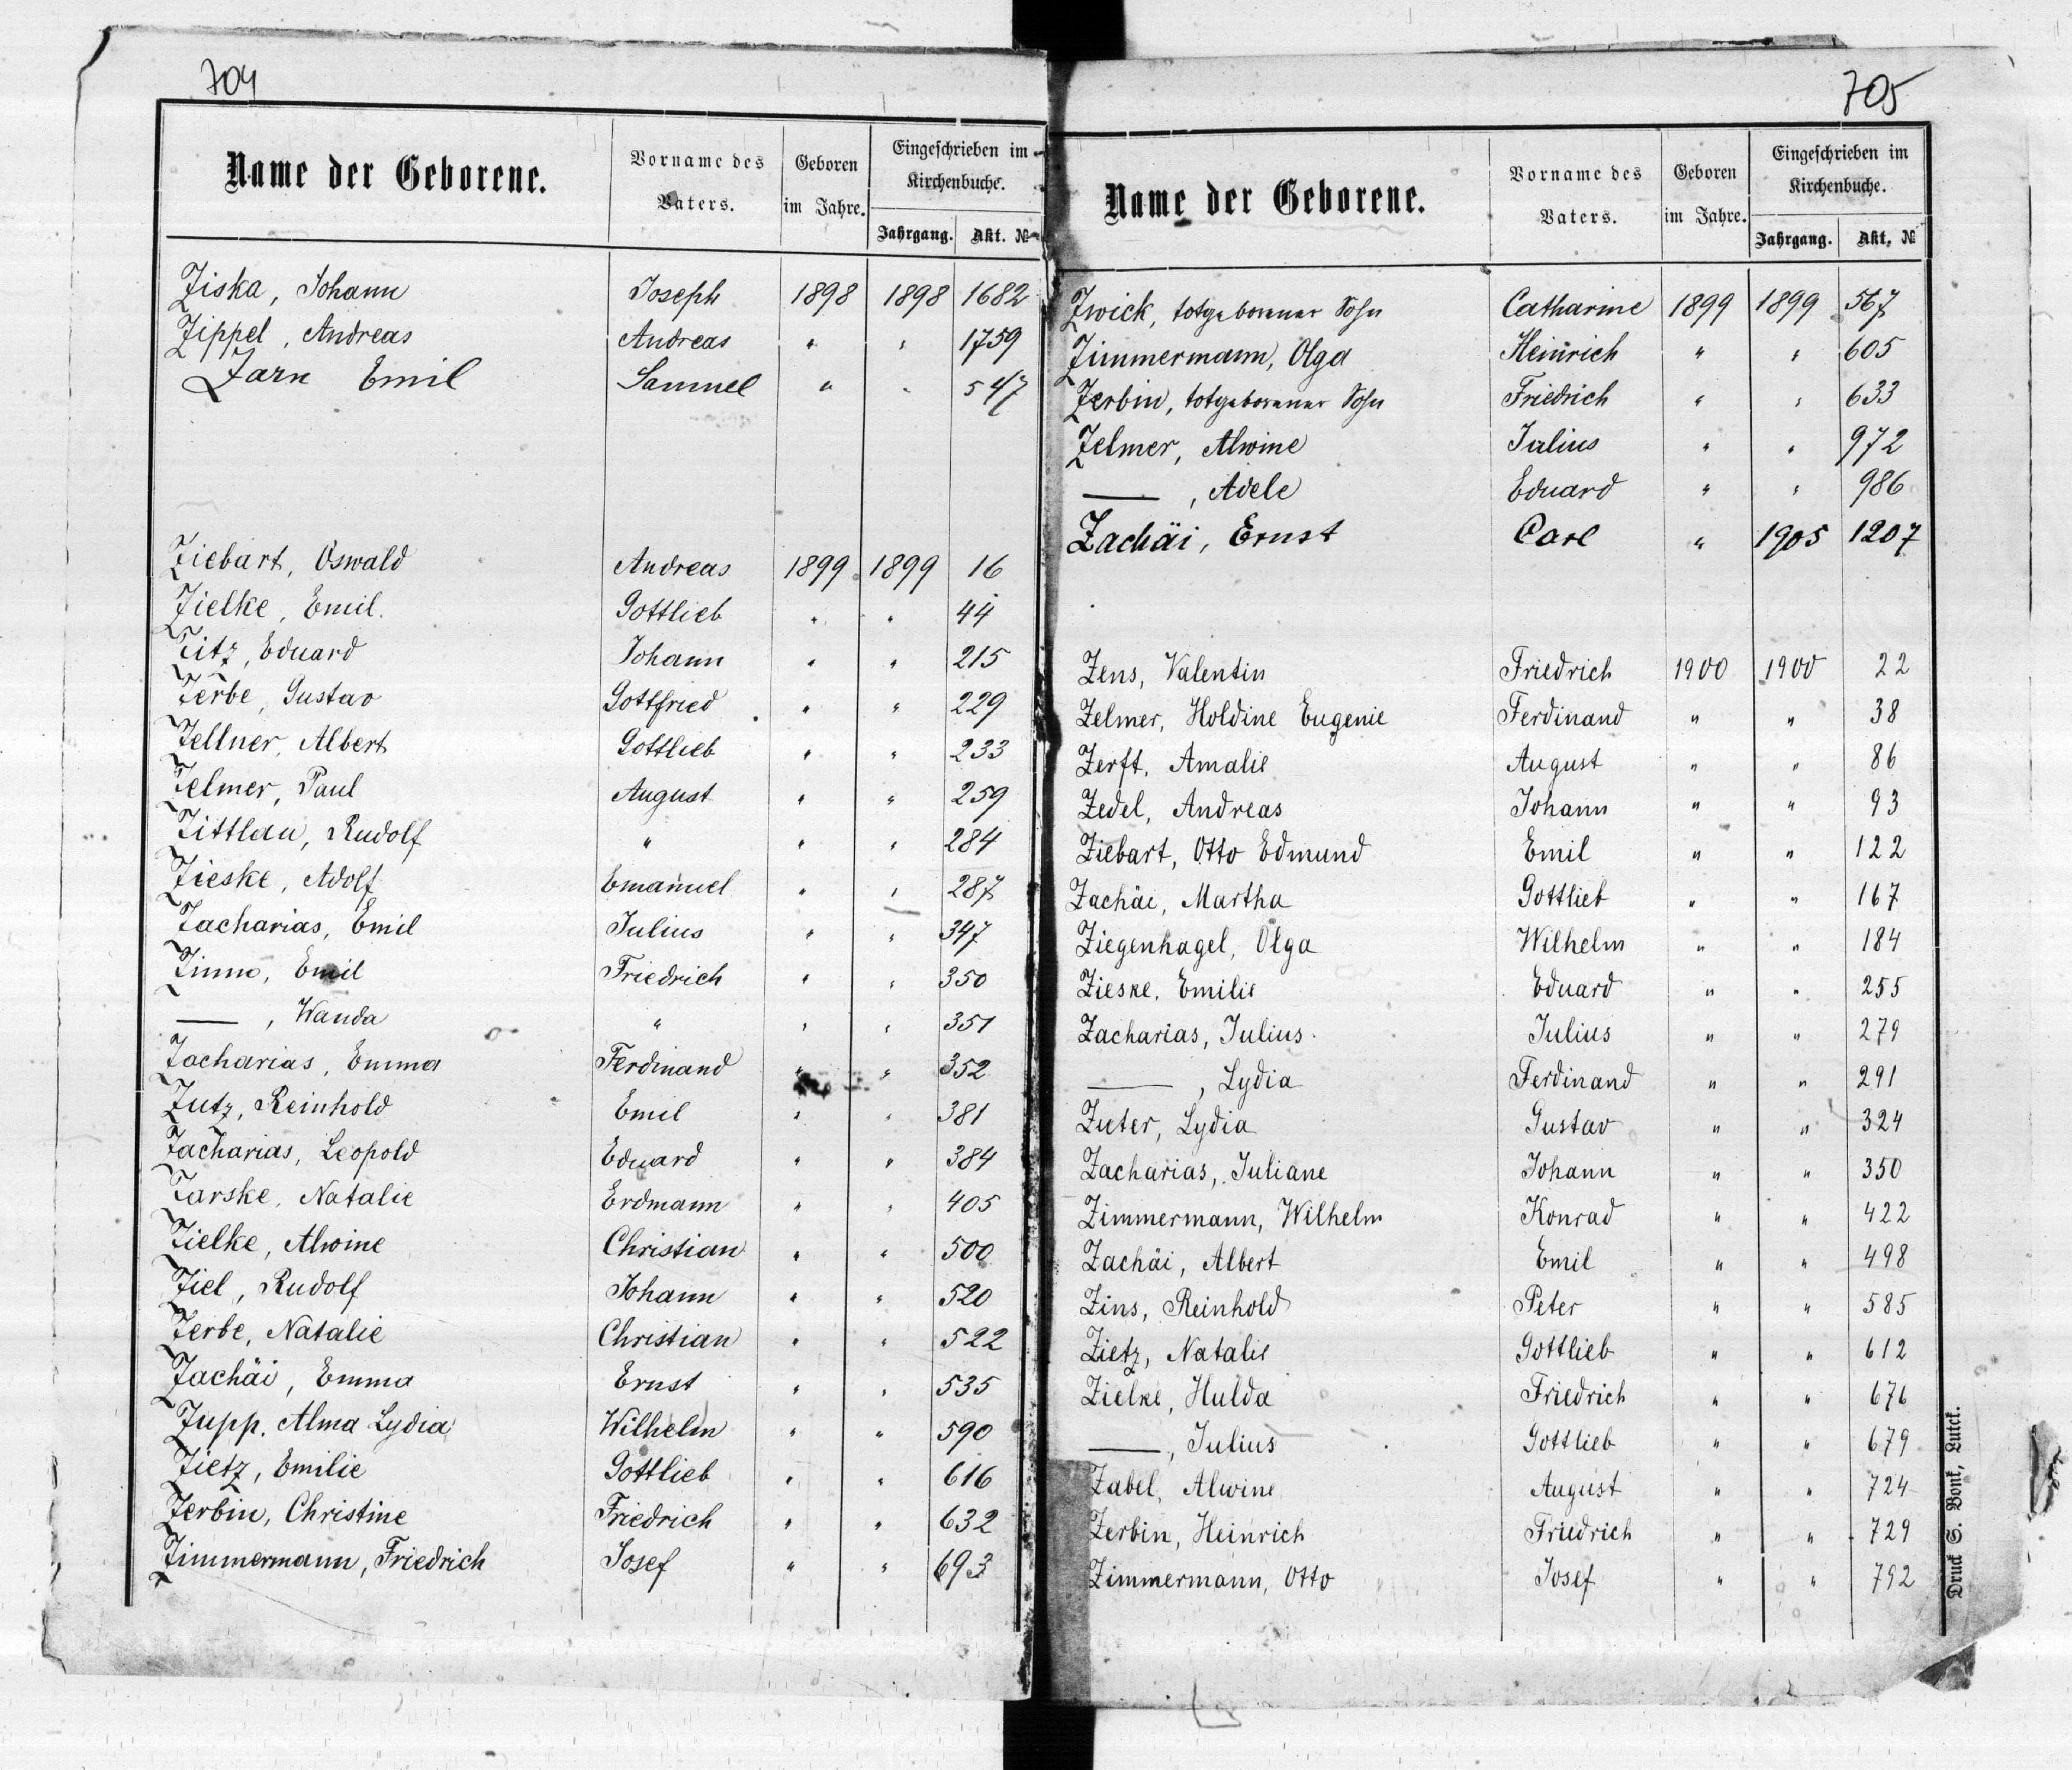 704
Name der Geborene. Vorname des Vaters. Geboren im Jahre. Eingeschrieben im Kirchenbuche. Jahrgang. Akt. №
Ziska, Johann Joseph 1898 1898 1682
Zippel, Andreas Andreas " " 1759
Zarn Emil Samuel " " 547
Ziebart, Oswald Andreas 1899 1899 16
Zielke, Emil. Gottlieb " " 44
Zitz, Eduard Johann " " 215
Zerbe, Gustav Gottfried " " 229
Zellner, Albert Gottlieb " " 233
Zelmer, Paul August " " 259
Zittlau, Rudolf " " " 284
Zieske, Adolf Emanuel " " 287
Zacharias, Emil Julius " " 347
Zinn, Emil Friedrich " " 350
——, Wanda " " " 351
Zacharias, Emma Ferdinand " " 352
Zutz, Reinhold Emil " " 381
Zacharias, Leopold Eduard " " 384
Zarske, Natalie Erdmann " " 405
Zielke, Alwine Christian " " 500
Ziel, Rudolf Johann " " 520
Zerbe, Natalie Christian " " 522
Zachäi, Emma Ernst " " 535
Zupp, Alma Lydia Wilhelm " " 590
Zietz, Emilie Gottlieb " " 616
Zerbin, Christine Friedrich " " 632
Zimmermann, Friedrich Josef " " 693
705
Name der Geborene. Vorname des Vaters. Geboren im Jahre. Eingeschrieben im Kirchenbuche. Jahrgang. Akt. №
Zwick, totgeborener Sohn Catharine 1899 1899 567
Zimmermann, Olga Heinrich " " 605
Zerbin, totgeborener Sohn Friedrich " " 633
Zelmer, Alwine Julius " " 972
——, Adele Eduard " " 986
Zachäi, Ernst Carl " 1905 1207
Zens, Valentin Friedrich 1900 1900 22
Zelmer, Holdine Eugenie Ferdinand " " 38
Zerft, Amalie August " " 86
Zedel, Andreas Johann " " 93
Ziebart, Otto Edmund Emil " " 122
Zachäi, Martha Gottlieb " " 167
Ziegenhagel, Olga Wilhelm " " 184
Zieske, Emilie Eduard " " 255
Zacharias, Julius Julius " " 279
——, Lydia Ferdinand " " 291
Zuter, Lydia Gustav " " 324
Zacharias, Juliane Johann " " 350
Zimmermann, Wilhelm Konrad " " 422
Zachäi, Albert Emil " " 498
Zins, Reinhold Peter " " 585
Zietz, Natalie Gottlieb " " 612
Zielke, Hulda Friedrich " " 676
——, Julius Gottlieb " " 679
Zabel, Alwine August " " 724
Zerbin, Heinrich Friedrich " " 729
Zimmermann, Otto Josef " " 792
Druck S. Bonk, Lutck.